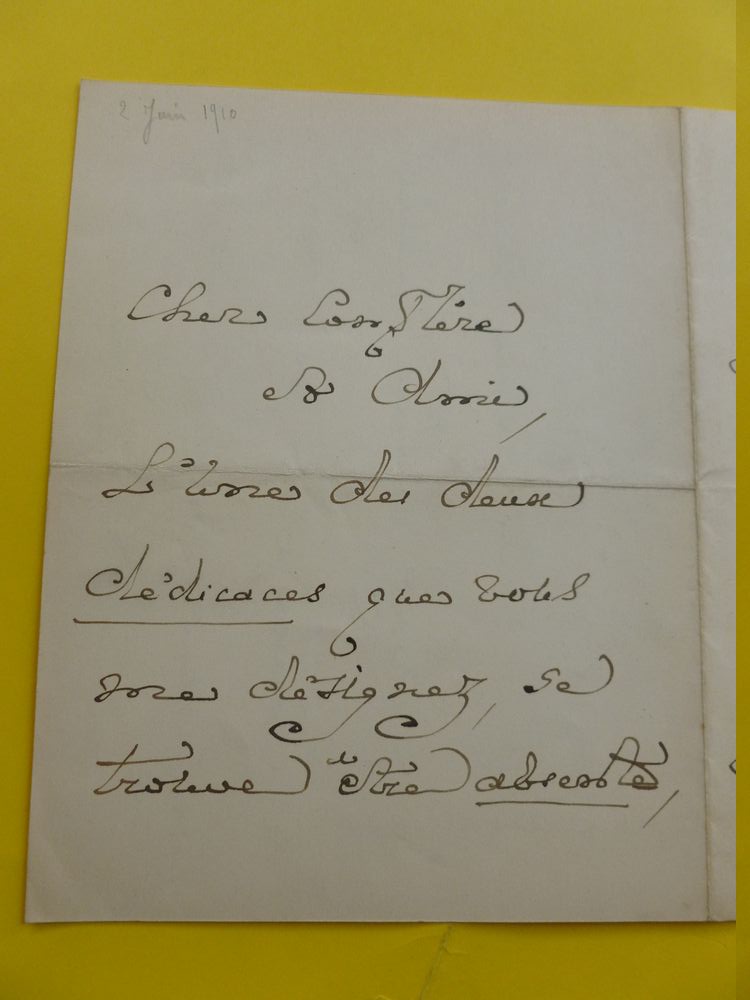 2 Juin 1910
Cher Confrère
et Ami,
L'une des deux
dédicaces que vous
me désignez, se
trouve être absente,